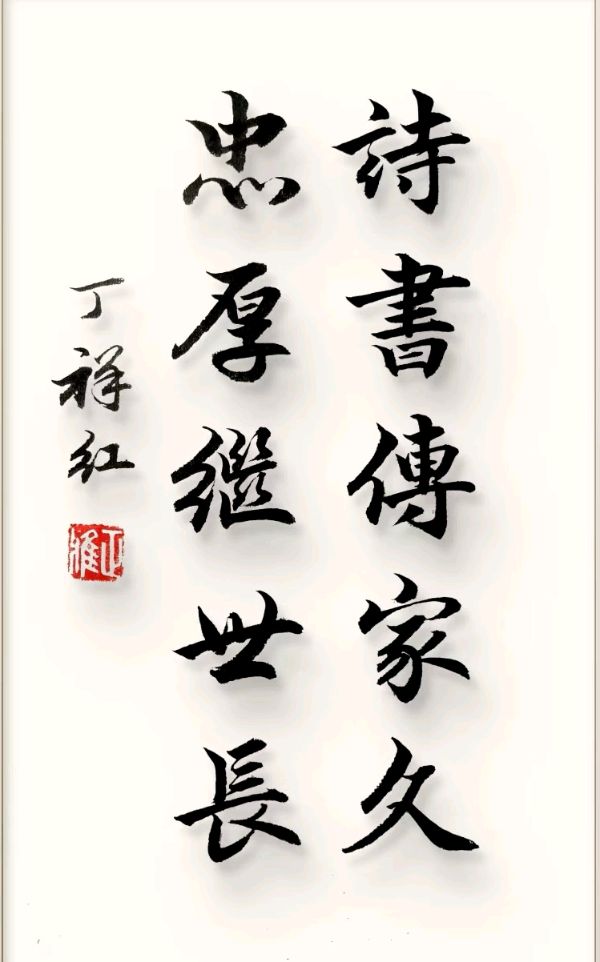 詩書傳家久
忠厚繼世長
丁祥红
正雅